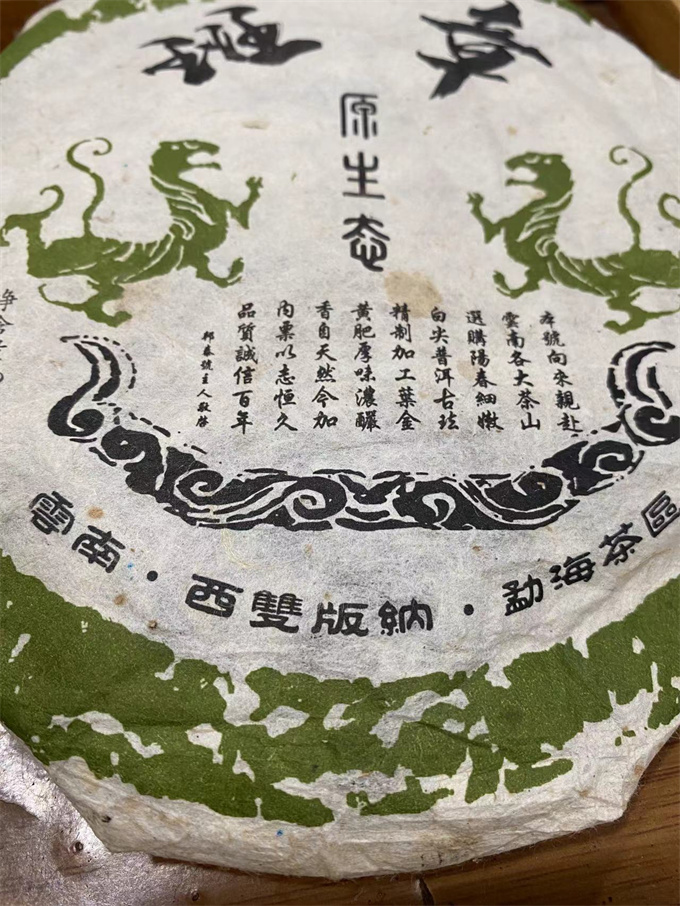 原生态
本號向來親赴
雲南各大茶山
選購陽春細嫩
白尖普洱古珐
精制加工葉金
黄肥厚味濃釅
香自天然今加
内票以志恒久
品質誠信百年
邦泰號主人敬啓
雲南·西雙版納·勐海茶區